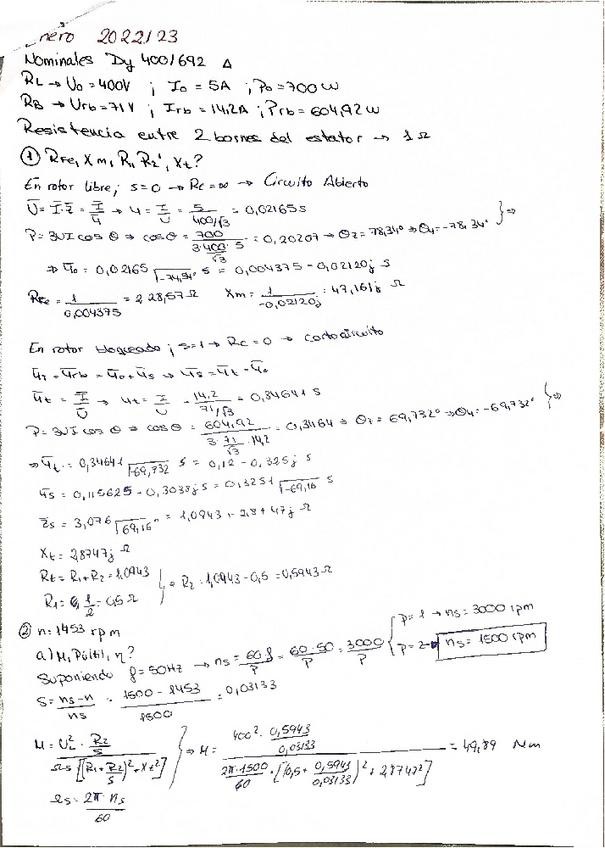 Enero 2022/23
Nominales Dy 400/692 Δ
RL → U₀ = 400V ; I₀ = 5A ; P₀ = 700 W
RB → Urb = 71 V ; Irb = 14,2A ; Prb = 604,92 W
Resistencia entre 2 bornes del estator → 1 Ω
① RFe, Xm, R₁, R₂', Xt?
En rotor libre; s=0 → Rc = ∞ → Circuito Abierto
→ 5 / (400/√3) = 0,02165 S
P = 3UI cos θ → cos θ = 700 / (3 · 400/√3 · 5) = 0,20207 → θz = 78,34° → θy = -78,34° } ⇒
= 0,004375 - 0,02120j S
RFe = 1 / 0,004375 = 228,57 Ω Xm = 1 / -0,02120j = 47,161j Ω
En rotor bloqueado; s=1 → Rc = 0 → cortocircuito
= 14,2 / (71/√3) = 0,34641 S
P = 3UI cos θ → cos θ = 604,92 / (3 · 71/√3 · 14,2) = 0,3464 → θz = 69,732° → θy = -69,732° } ⇒
0,34641 |-69,732 S = 0,12 - 0,325j S
= 0,115625 - 0,3038j S = 0,3251 |-69,16 S
= 3,076 |69,16° = 1,0943 + 2,8747j Ω
Xt = 2,8747j Ω
Rt = R₁ + R₂ = 1,0943
R₂ = 1,0943 - 0,5 = 0,5943 Ω
R₁ = 1/2 = 0,5 Ω
② n = 1453 rpm
a) M, Pútil, η?
Suponiendo f = 50Hz → ns = 60·f / P = 60·50 / P = 3000 / P { p = 1 → ns = 3000 rpm
p = 2 → ns = 1500 rpm
S = (ns - n) / ns = (1500 - 1453) / 1500 = 0,03133
M = U²· R₂/S / Ωs [(R₁ + R₂/S)² + Xt²] } ⇒ M = 400² · 0,5943/0,03133 / 2π·1500/60 · [(0,5 + 0,5943/0,03133)² + 2,8747²] = 49,89 Nm
Ωs = 2π · ns / 60